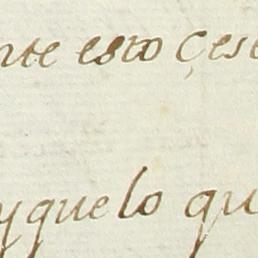 nte esto çese
y que lo qu